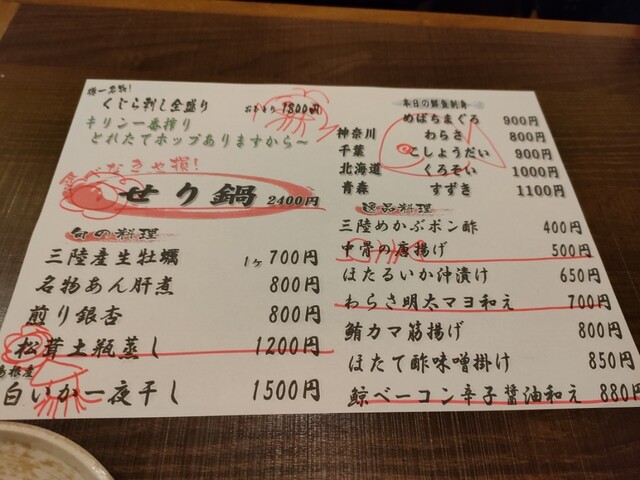 佳一名物!
くじら刺し全盛り おひとり 1800円
キリン一番搾り
とれたてホップありますから〜
食べなきゃ損!
せり鍋 2400円
旬の料理
三陸産生牡蠣 1ヶ 700円
名物あん肝煮 800円
煎り銀杏 800円
松茸土瓶蒸し 1200円
島根産
白いか一夜干し 1500円
本日の鮮魚刺身
めばちまぐろ 900円
神奈川 わらさ 800円
千葉 こしょうだい 900円
北海道 くろそい 1000円
青森 すずき 1100円
逸品料理
三陸めかぶポン酢 400円
中骨の唐揚げ 500円
ほたるいか沖漬け 650円
わらさ明太マヨ和え 700円
鮪カマ筋揚げ 800円
ほたて酢味噌掛け 850円
鯨ベーコン辛子醤油和え 880円